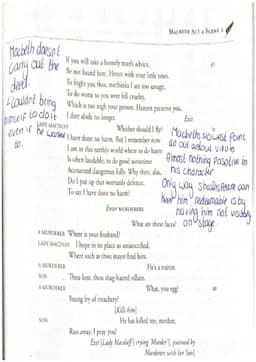 MACBETH ACT 4 SCENE 2
Macbeth doesn't
carry out the
deed.
- Couldn't bring
himself to do it
even if he wanted
to.
If you will take a homely man's advice,
Be not found here. Hence with your little ones.
To fright you thus, methinks I am too savage;
To do worse to you were fell cruelty,
Which is too nigh your person. Heaven preserve you,
I dare abide no longer.
Exit
LADY MACDUFF
Whither should I fly?
I have done no harm. But I remember now
I am in this earthly world where to do harm
Is often laudable, to do good sometime
Accounted dangerous folly. Why then, alas,
Do I put up that womanly defence,
To say I have done no harm?
Macbeths slowest point
an out without villain
Almost nothing positive in
his character
Only way Shakespeare can
him redeemable is by
having him not visibly
on stage.
Enter MURDERERS
What are these faces?
A MURDERER
Where is your husband?
LADY MACDUFF
I hope in no place so unsanctified,
Where such as thou mayst find him.
A MURDERER
He's a traitor.
SON
Thou liest, thou shag-haired villain.
A MURDERER
What, you egg!
80
Young fry of treachery!
[Kills him]
SON
He has killed me, mother,
Run away, I pray you!
Exit [Lady Macduff] crying 'Murder', pursued by
Murderers with her Son]